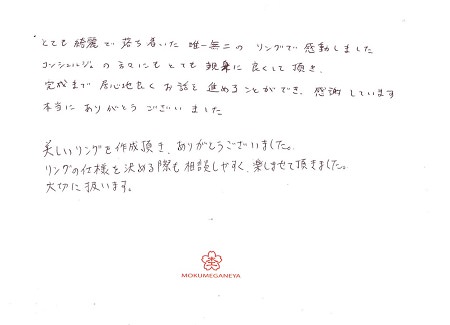 とても綺麗で落ち着いた唯一無二のリングで感動しました
コンシェルジュの方々にもとても親身に良くして頂き、
完成まで居心地良くお話を進めることができ、感謝しています
本当にありがとうございました
美しいリングを作成頂き、ありがとうございました。
リングの仕様を決める際も相談しやすく、楽しませて頂きました。
大切に扱います。
MOKUMEGANEYA